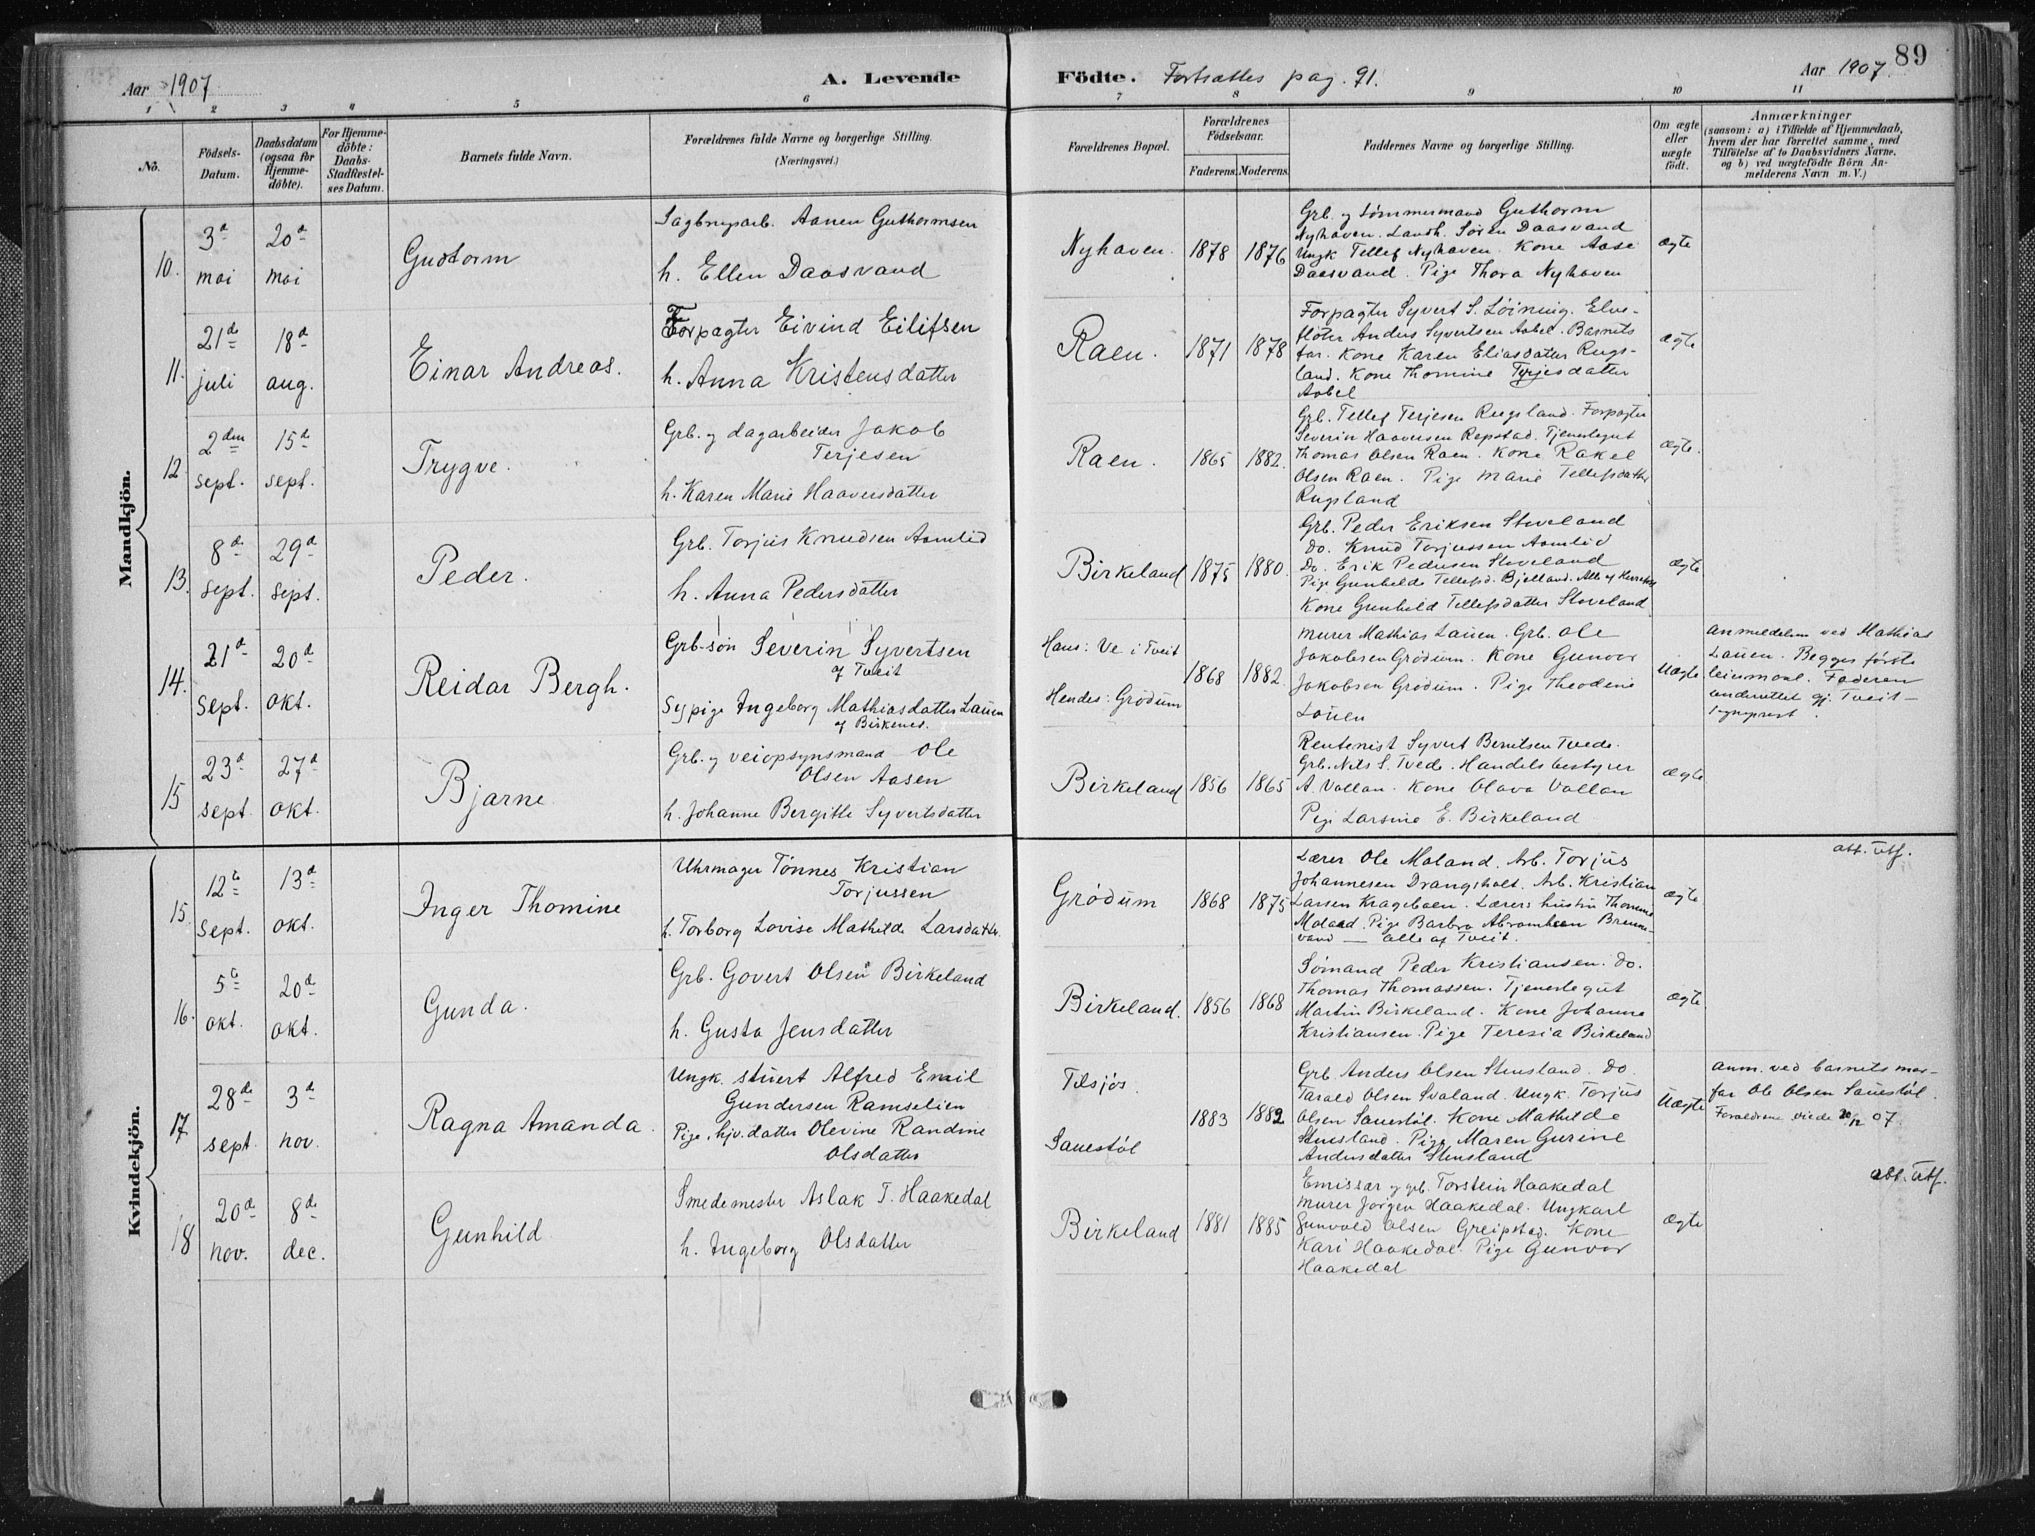 89
Aar 1907
A. Levende Födte. Fortsættes pag. 91.
Aar 1907.
1 2 3 4 5 6 7 8 9 10 11
No.
Födsels-Datum.
Daabsdatum (ogsaa for Hjemme-döbte).
For Hjemme-döbte: Daabs-Stadfestel-ses Datum.
Barnets fulde Navn.
Forældrenes fulde Navne og borgerlige Stilling.
(Næringsvei.)
Forældrenes Bopæl.
Forældrenes Födselsaar.
Faderens. Moderens.
Faddernes Navne og borgerlige Stilling.
Om ægte eller uægte födt.
Anmærkninger
(saasom: a) i Tilfælde af Hjemmedaab, hvem der har forrettet samme, med Tilföielse af to Daabsvidners Navne, og b) ved uægtefödte Börn Anmelderens Navn m. V.)
Mandkjön.
10. 3d mai 20d mai
Gustorm
Sagbrugsarb. Aanen Guthormsen
h. Ellen Daasvand
Nyhaven. 1878 1876
Grb. og Tømmermand Guthorm
Nyhaven. Landh. Søren Daasvand
Ungk Tellef Nyhaven. Kone Aase
Daasvand. Pige Thora Nyhaven
ægte
11. 21de juli 18d aug.
Einar Andreas.
Forpagter Eivind Eilifsen
h. Anna Kristensdatter
Raen. 1871 1878
Forpagter Syvert S. Løining. Elve-
fløter Anders Syvertsen Aabel. Barnets
far. Kone Karen Eliasdatter Rugs-
land. Kone Thomine Terjesdatter
Aabel
ægte
12 2den sept. 15d sept.
Trygve.
Grb. og dagarbeider Jakob
Terjesen
h. Karen Marie Haaversdatter
Raen. 1865 1882.
Grb. Tellef Terjesen Rugsland. Forpagter
Severin Haaversen Repstad. Tjenestegut
Thomas Olsen Raen. Kone Rakel
Olsen Raen. Pige Marie Tellefsdatter
Rugsland
ægte.
13. 8de sept. 29d sept.
Peder.
Grb. Torjus Knudsen Aamlid
h. Anna Pedersdatter
Birkeland 1875 1880.
Grb. Peder Eriksen Stoveland
Do. Knud Torjussen Aamlid
Do. Erik Pedersen Stoveland
Pige Gunhilde Tellefsd. Bjelland. Alle af
Kone Gunhild Tellefsdatter Stoveland
ægte
14. 21d sept. 20d okt.
Reidar Bergh.
Grb-søn Severin Syvertsen
af Tveit
Sypige Ingeborg Mathiasdatter Lauen
af Birkenes.
Hans: Ve i Tveit
Hendes: Grødum
1868 1882.
Murer Mathias Lauen. Grb. Ole
Jakobsen Grødum. Kone Gunvor
Jakobsen Grødum. Pige Theodine
Lauen
Uægte
Anmeldelsen ved Mathias
Lauen. Begges første
leiermaal. Faderen
underrettet gj. Tveit-
sogneprest.
15 23d sept. 27d okt.
Bjarne
Grb. og veiopsynsmand Ole
Olsen Aasen
h. Johanne Bergitte Syvertsdatter
Birkeland 1856 1865
Rentenist Syvert Berntsen Tvede.
Grb. Nils S. Tvede. Handelsbestyrer
A. Vollan. Kone Olava Vollan
Pige Larsine E. Birkeland
ægte
Kvindekjön.
15. 12te sept. 13d okt.
Inger Thomine
Uhrmager Tønnes Kristian
Torjussen
h. Torborg Lovise Mathilde Larsdatter.
Grødum 1868 1875
Lærer Ole Moland. Arb. Torjus
Johannesen Drangsholt. Arb. Kristian
Larsen Krageboen. Lærers hustru Thomine
Moland. Pige Barbra Abrahamsen Brenne-
vand — alle af Tveit.
ægte
att. utf.
16. 5te okt. 20d okt.
Gunda.
Grb. Govert Olsen Birkeland
h. Gusta Jensdatter
Birkeland. 1856 1868
Sømand Peder Kristiansen. Do.
Thomas Thomassen. Tjenestegut
Martin Birkeland. Kone Johanne
Kristiansen. Pige Teresia Birkeland
ægte
17 28de sept. 3d nov.
Ragna Amanda.
Ungk. stuert Alfred Emil
Gundersen Ramselien
Pige, hjv.datter Olevine Randine
Olsdatter
Tilsjøs.
Sauestøl
1883 1882
Grb. Anders Olsen Stensland. Do.
Tarald Olsen Svaland. Ungk. Torjus
Olsen Sauestøl. Kone Mathilde
Stensland. Pige Maren Gurine
Andersdatter Stensland
Uægte
Anm. ved barnets mor-
far Ole Olsen Sauestøl.
Forældrene viede 20/12 07.
18 20de nov. 8de dec.
Gunhild
Smedemester Aslak T. Haakedal
h. Ingeborg Olsdatter
Birkeland 1881 1885
Emissær og grb. Torstein Haakedal
Murer Jørgen Haakedal. Ungkarl
Gunvold Olsen Greipstad. Kone
Kari Haakedal. Pige Gunvor
Haakedal
ægte
att. utf.